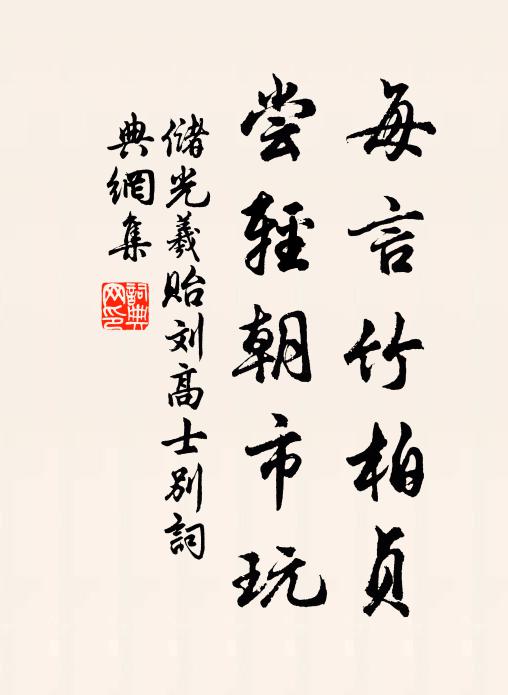 每言竹柏贞
尝轻朝市玩
储光羲贻刘高士别詞
典網集
詞典
网印